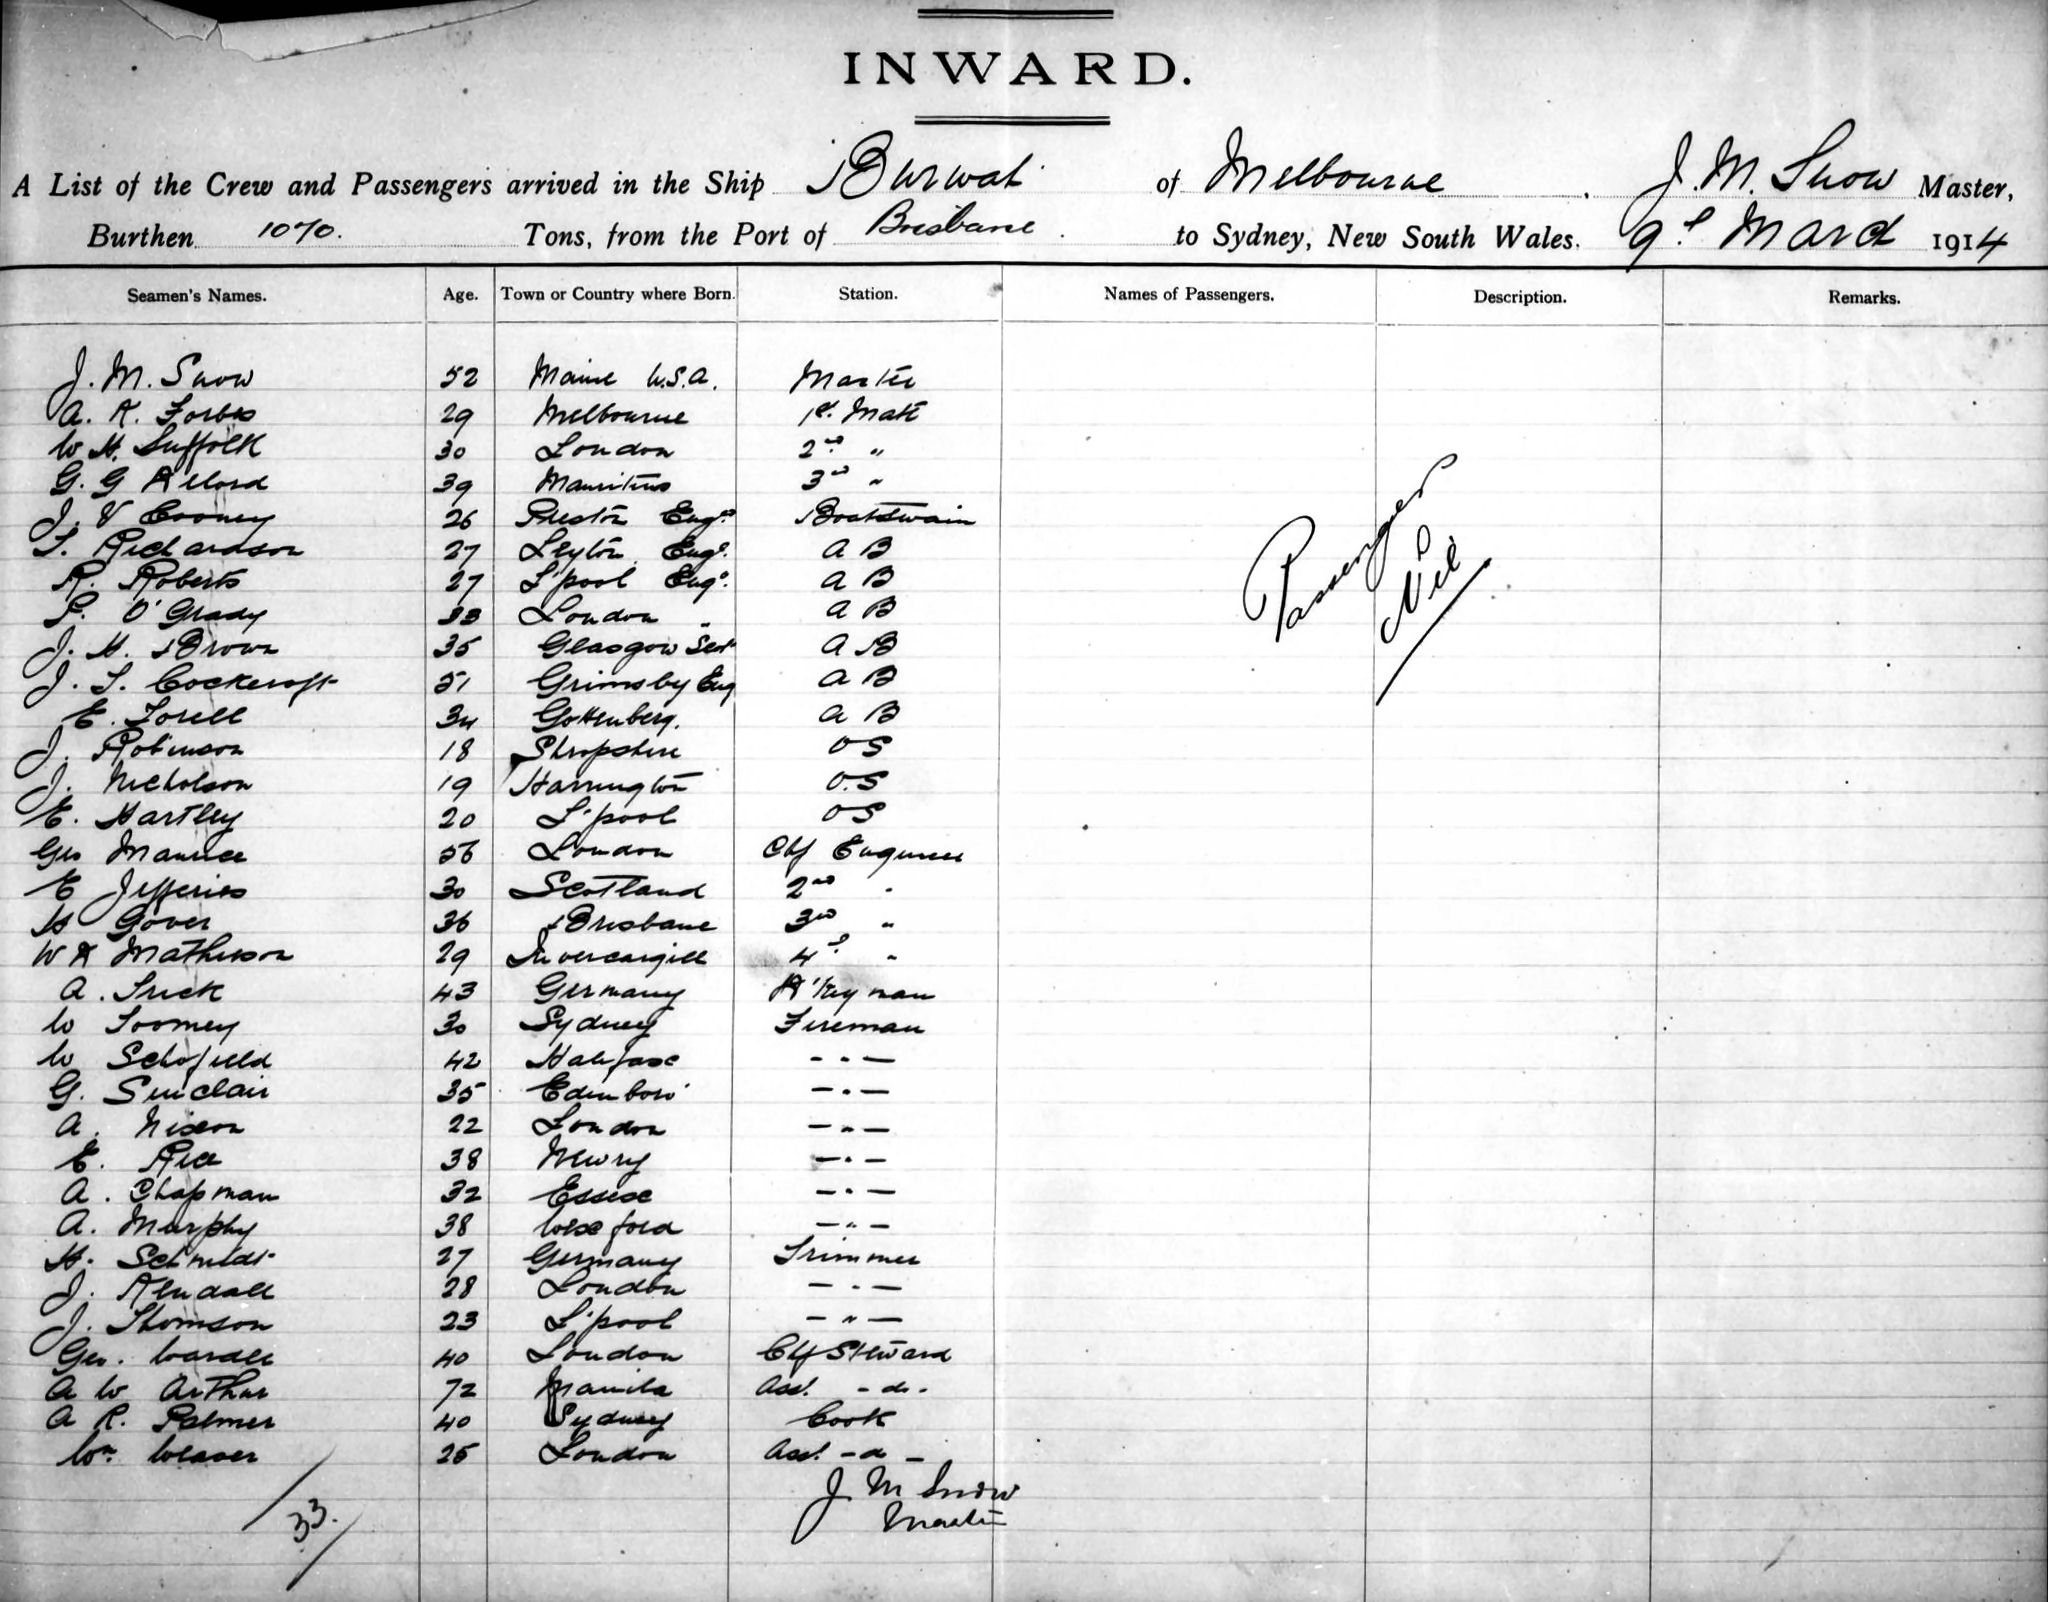 INWARD.
A List of the Crew and Passengers arrived in the Ship Burwah of Melbourne, J. M. Snow Master,
Burthen 1070. Tons, from the Port of Brisbane to Sydney, New South Wales. 9th March 1914
Seamen's Names. Age. Town or Country where Born. Station. Names of Passengers. Description. Remarks.
J. M. Snow 52 Maine U.S.A. Master
A. K. Forbes 29 Melbourne 1st. Mate
W H. Suffolk 30 London 2nd "
G. G Allord 39 Mauritius 3rd "
J. V Cooney 26 Preston Engd Boatswain
T. Richardson 27 Leyton Engd. A B
R. Roberts 27 L'pool Engd. A B
P. O'Grady 33 London " A B
J. H. Brown 35 Glasgow Scot A B
J. T. Cockcroft 51 Grimsby Eng A B
E. Torell 34 Gottenberg. A B
J. Robinson 18 Shropshire O S
J. Nicholson 19 Harrington O.S
E. Hartley 20 L'pool O S
Geo Maurice 56 London Chf Engineer
E Jefferies 30 Scotland 2nd "
H Gover 36 Brisbane 3rd "
W A Mathieson 29 Invercargill 4th "
A. Trick 43 Germany D'keyman
W Toomey 30 Sydney Fireman
W Schofield 42 Halifax - " -
G. Sinclair 35 Edinboro' - " -
A. Nixon 22 London - " -
E. Rice 38 Newry - " -
A. Chapman 32 Essex - " -
A. Murphy 38 Wexford - " -
H. Schmidt 27 Germany Trimmer
J. Kendall 28 London - " -
J. Thomson 23 L'pool - " -
Geo. Wardle 40 London Chf Steward
A W Arthur 72 Manila Asst. - do -
A R. Palmer 40 Sydney Cook
Wm. Weaver 25 London Asst - do -
Passengers
Nil
33.
J. M Snow
Master